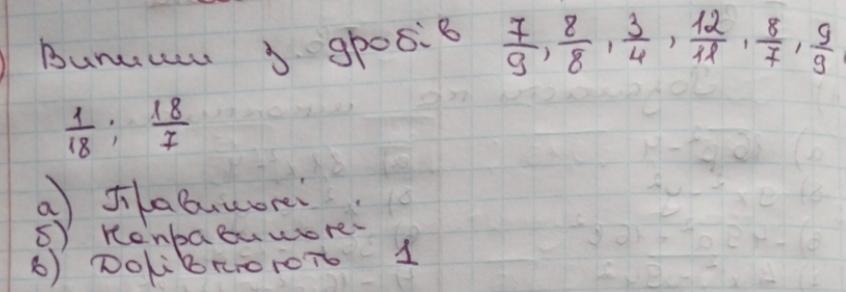 Випиши з дробів 7/9, 8/8, 3/4, 12/11, 8/7, 9/9,
1/18; 18/7
а) Правильні.
б) Неправильні
в) Дорівнюють 1